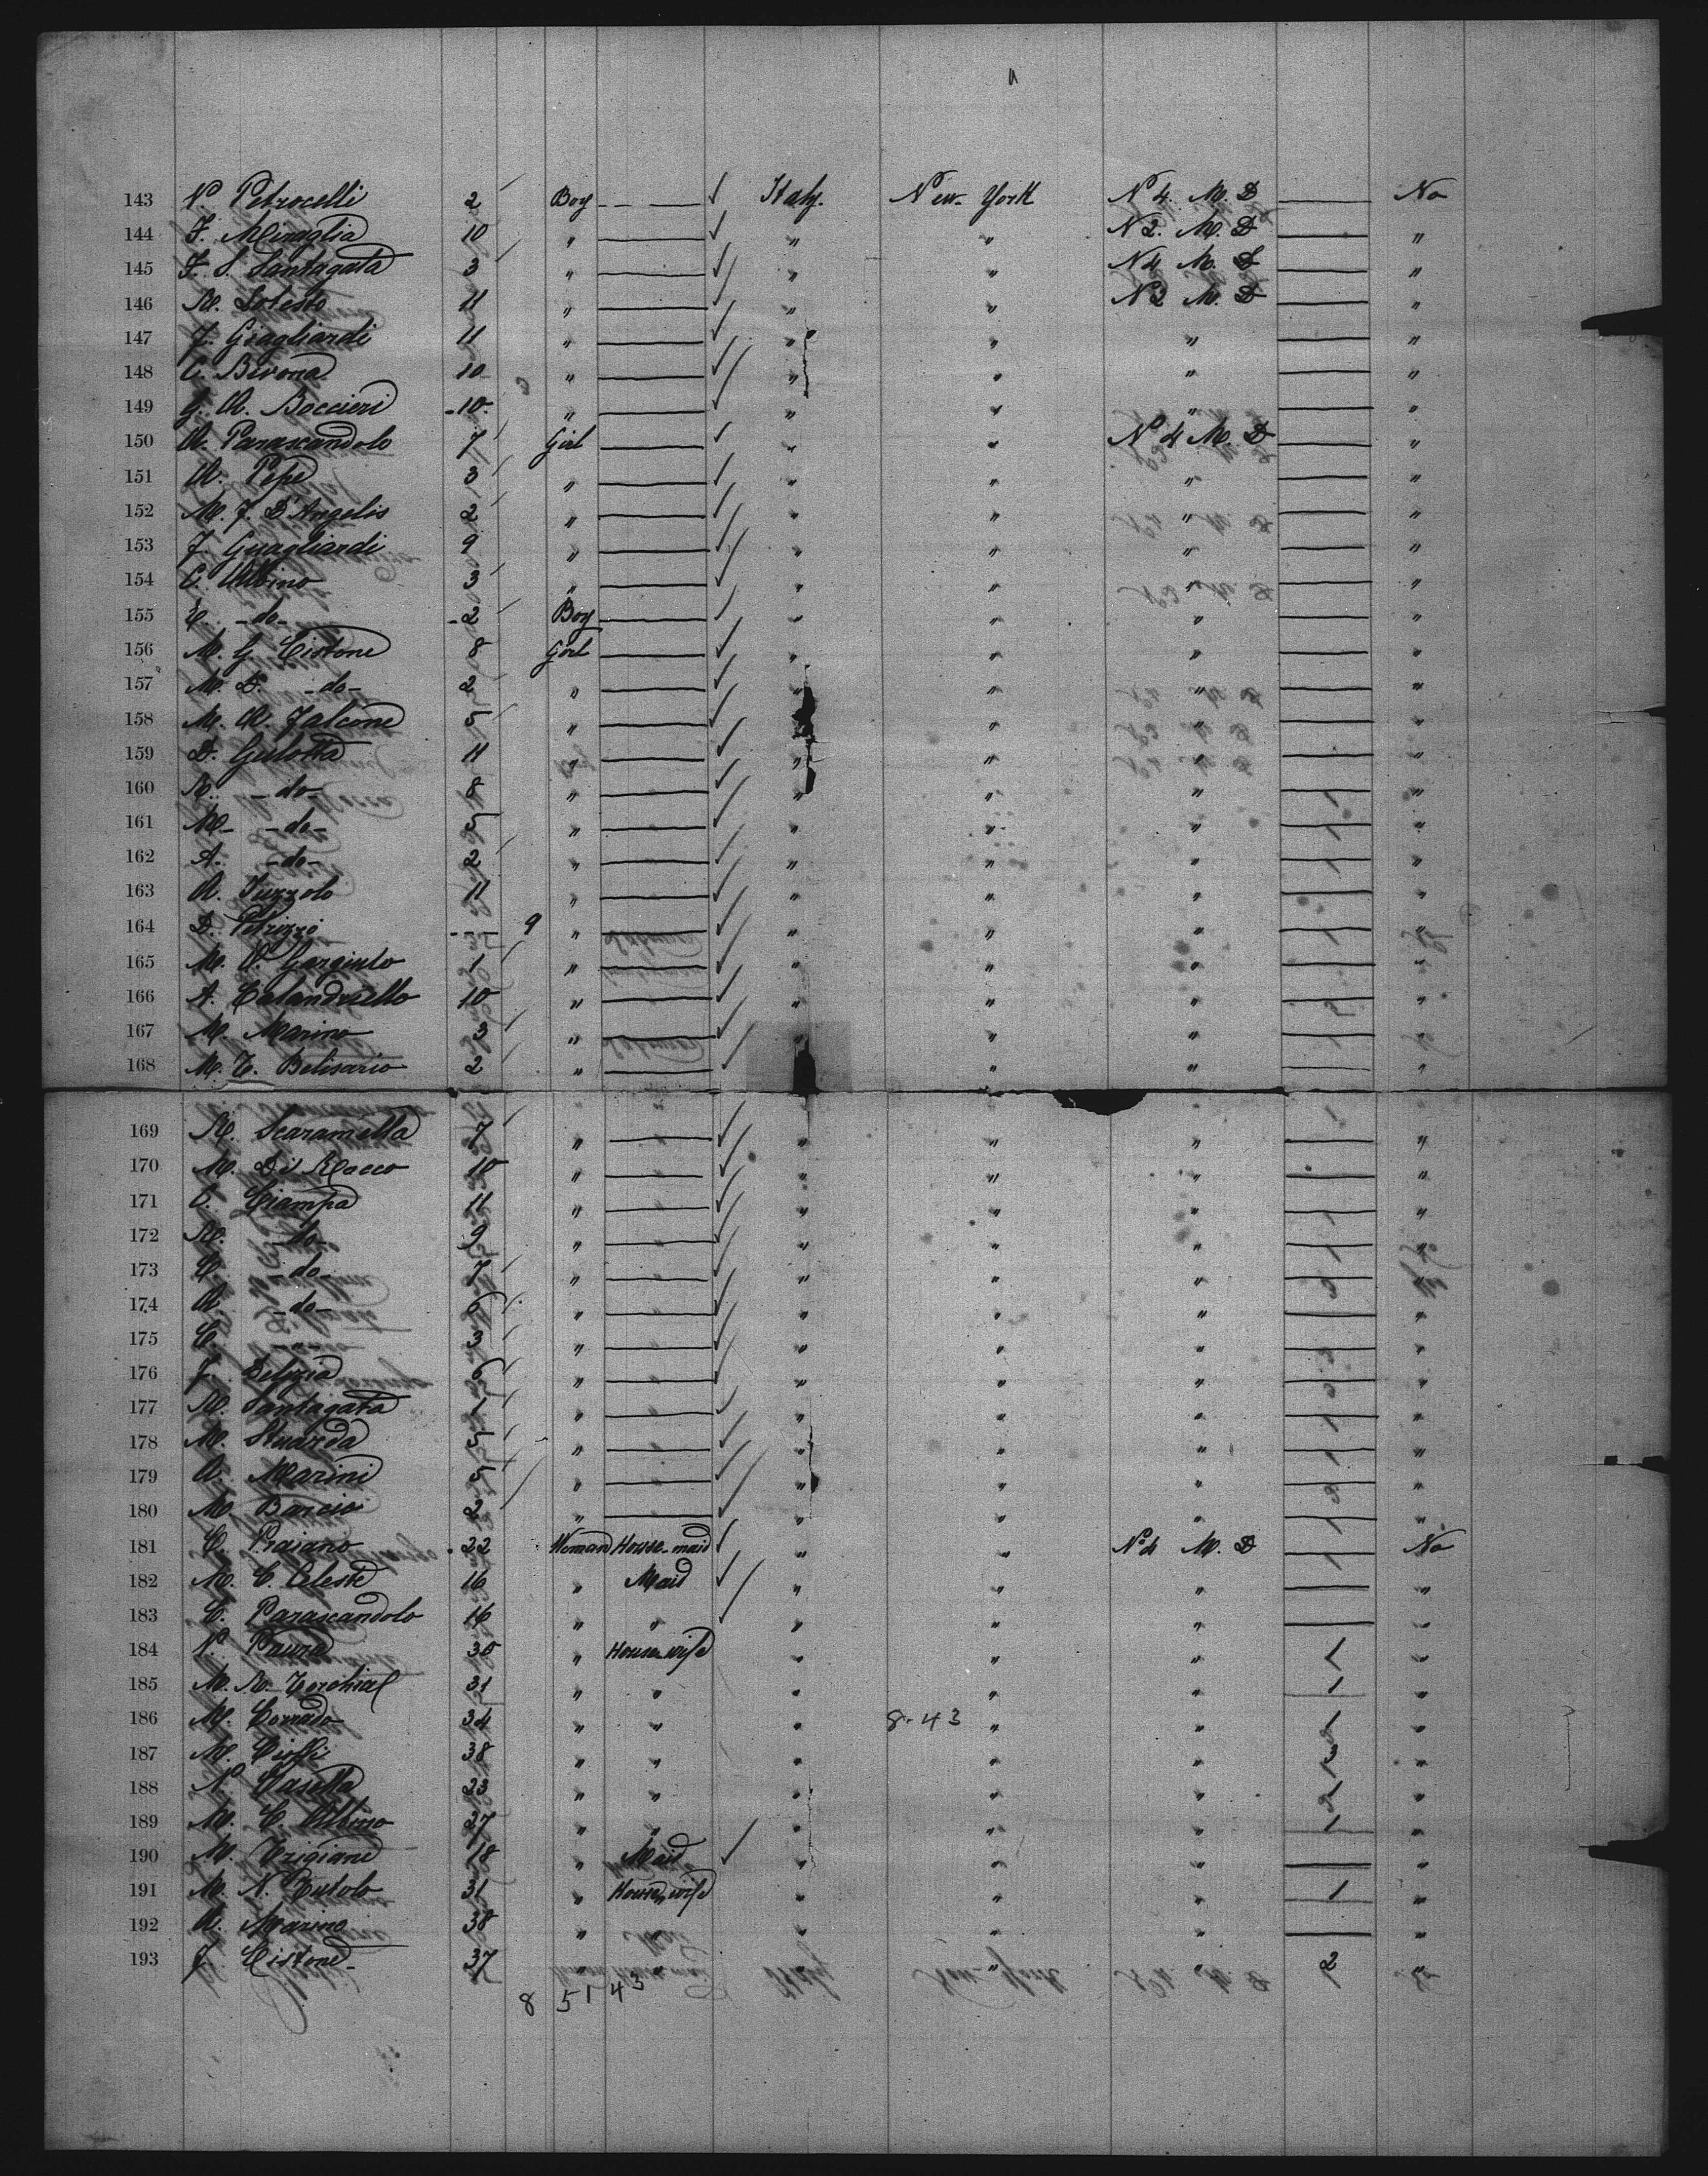 143 N. Petrocelli 2 Boy Italy. New-York N 4. M. D No
144 F. Miraglia 10 " " " N 2. M. D "
145 F. S. Santagata 3 " " " N 4 M. D "
146 M. Solesto 11 " " " N 2 M. D "
147 F. Giagliardi 11 " " " " "
148 C. Bivona 10 " " " " "
149 G. A. Boccieri 10. " " " " "
150 A. Parascandolo 7 Girl " " N 4 M. D "
151 A. Pepe 3 " " " " "
152 M. F. D'Angelis 2 " " " " "
153 F. Guagliardi 9 " " " " "
154 C. Albino 3 " " " " "
155 C. -do- 2 Boy " " " "
156 M. G. Cistone 8 Girl " " " "
157 M. D. -do- 2 " " " " "
158 M. A. Falcone 5 " " " " "
159 D. Gulotta 11 " " " " "
160 R. -do- 8 " " " " "
161 M- -do- 5 " " " " "
162 A. -do- 2 " " " " "
163 A. Iuzzolo 11 " " " " "
164 D. Petrizzi --- 9 " " " " "
165 M. C. Garginto 1 " " " " "
166 A. Calandriello 10 " " " " "
167 M. Marino 3 " " " " "
168 M. T. Belisario 2 " " " "
169 R. Scaramella 7 " " " " "
170 M. Di Rocco 10 " " " " "
171 C. Ciampa 11 " " " " "
172 M. -do- 9 " " " " "
173 C. -do- 7 " " " " "
174 A. -do- 6 " " " " "
175 C. -"- 3 " " " " "
176 F. Delizia 6 " " " " "
177 M. Santagata 1 " " " " "
178 M. Stuarda 5 " " " " "
179 A. Marini 5 " " " " "
180 M. Barcio 2 " " " " "
181 C. Praiano 22 Woman House-maid " " N 4 M. D No
182 M. C. Celeste 16 " Maid " " " "
183 C. Parascandolo 16 " " " " " "
184 N. Paura 30 " House-wife " " " 1 "
185 M. R. 31 " " " " " 1 "
186 M. Corrado 34 " " " 8-43 " " 1 "
187 M. Cioffi 38 " " " " " 3 "
188 N. Casella 23 " " " " " 1 "
189 M. C. Albino 27 " " " " " 1 "
190 M. Trigiani 18 " Maid " " " "
191 M. N. Tutolo 31 " House-wife " " " 1 "
192 A. Marino 38 " " " " " "
193 F. Cistone- 37 " " " " " 2 "
8 51 43